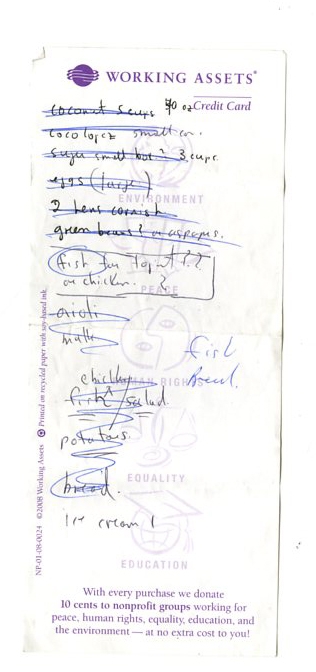 WORKING ASSETS®
Credit Card
coconut 30 oz
coco lopez small
sugar small box? 3 cups
eggs (large)
ENVIRONMENT
2 hens cornish
green beans? or asparagus.
fish for ??
or chicken. ?
PEACE
aioli
milk
fish
chicken
HUMAN RIGHTS
bread.
fish salad.
potatoes.
EQUALITY
bread.
ice cream 1
EDUCATION
NP-01-08-0024 ©2008 Working Assets Printed on recycled paper with soy-based ink
With every purchase we donate
10 cents to nonprofit groups working for
peace, human rights, equality, education, and
the environment — at no extra cost to you!